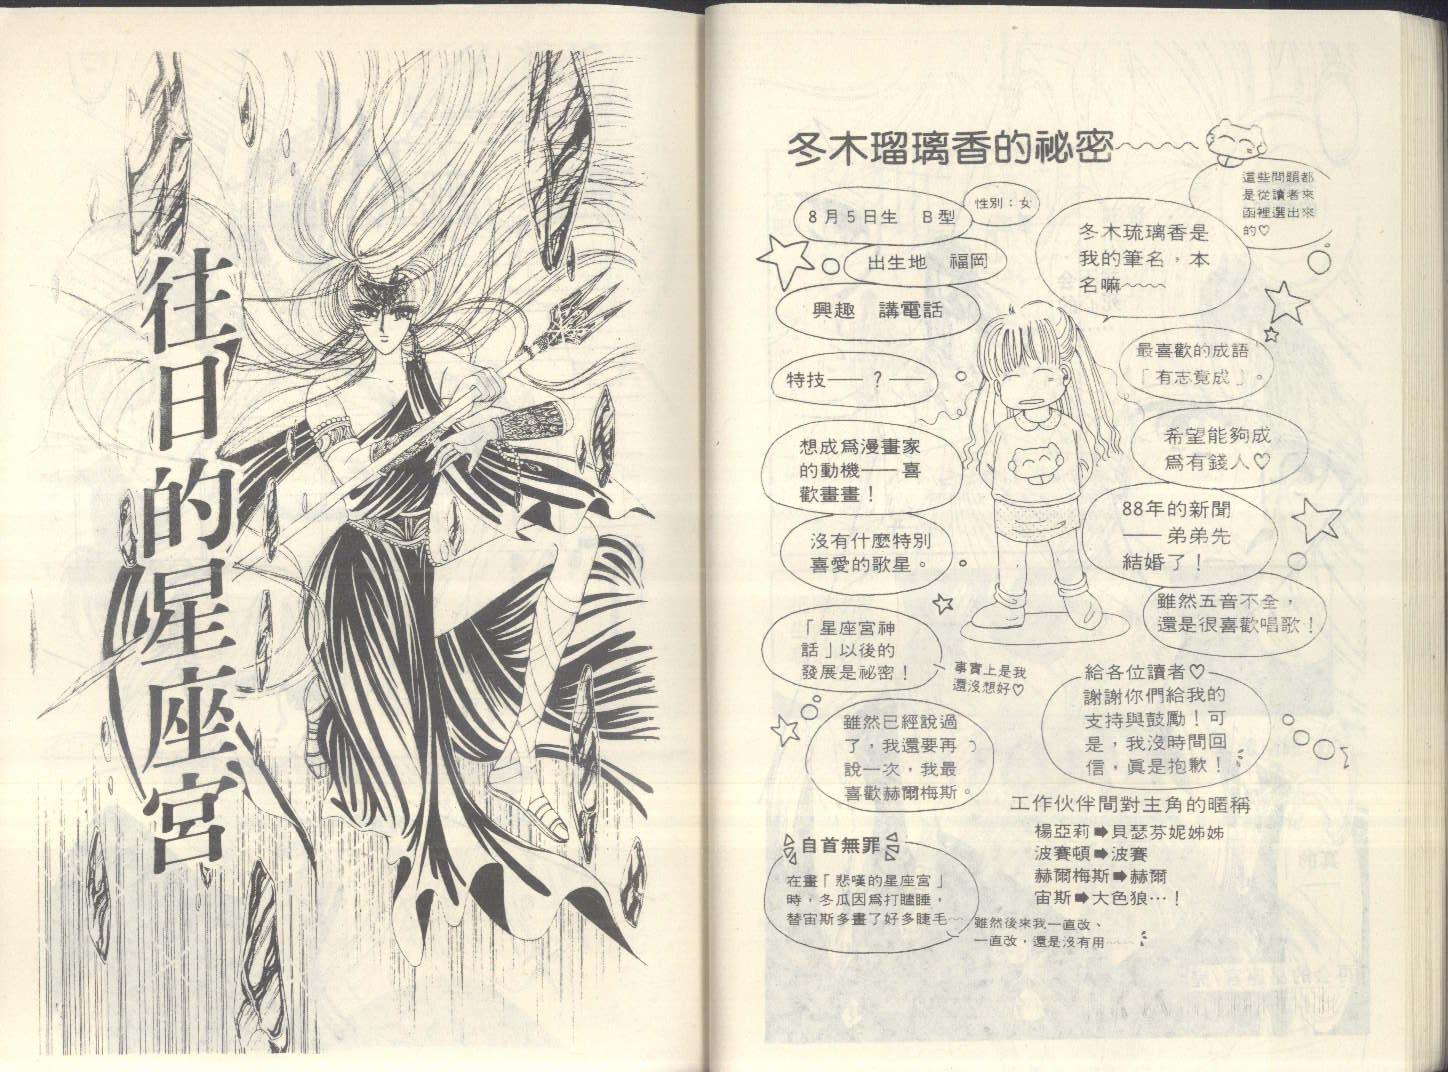 往日的星座宮
冬木瑠璃香的祕密
這些問題都
是從讀者來
函裡選出來
的♡
8月5日生　B型
性別：女
冬木琉璃香是
我的筆名，本
名嘛~~~
出生地　福岡
興趣　講電話
最喜歡的成語
「有志竟成」。
特技——？——
希望能夠成
為有錢人♡
想成為漫畫家
的動機——喜
歡畫畫！
88年的新聞
——弟弟先
結婚了！
沒有什麼特別
喜愛的歌星。
雖然五音不全，
還是很喜歡唱歌！
「星座宮神
話」以後的
發展是祕密！
事實上是我
還沒想好♡
給各位讀者♡
謝謝你們給我的
支持與鼓勵！可
是，我沒時間回
信，真是抱歉！
雖然已經說過
了，我還要再
說一次，我最
喜歡赫爾梅斯。
工作伙伴間對主角的暱稱
楊亞莉➡貝瑟芬妮姊姊
波賽頓➡波賽
赫爾梅斯➡赫爾
宙斯➡大色狼…！
自首無罪
在畫「悲嘆的星座宮」
時，冬瓜因為打瞌睡，
替宙斯多畫了好多睫毛~~
雖然後來我一直改、
一直改，還是沒有用~~~